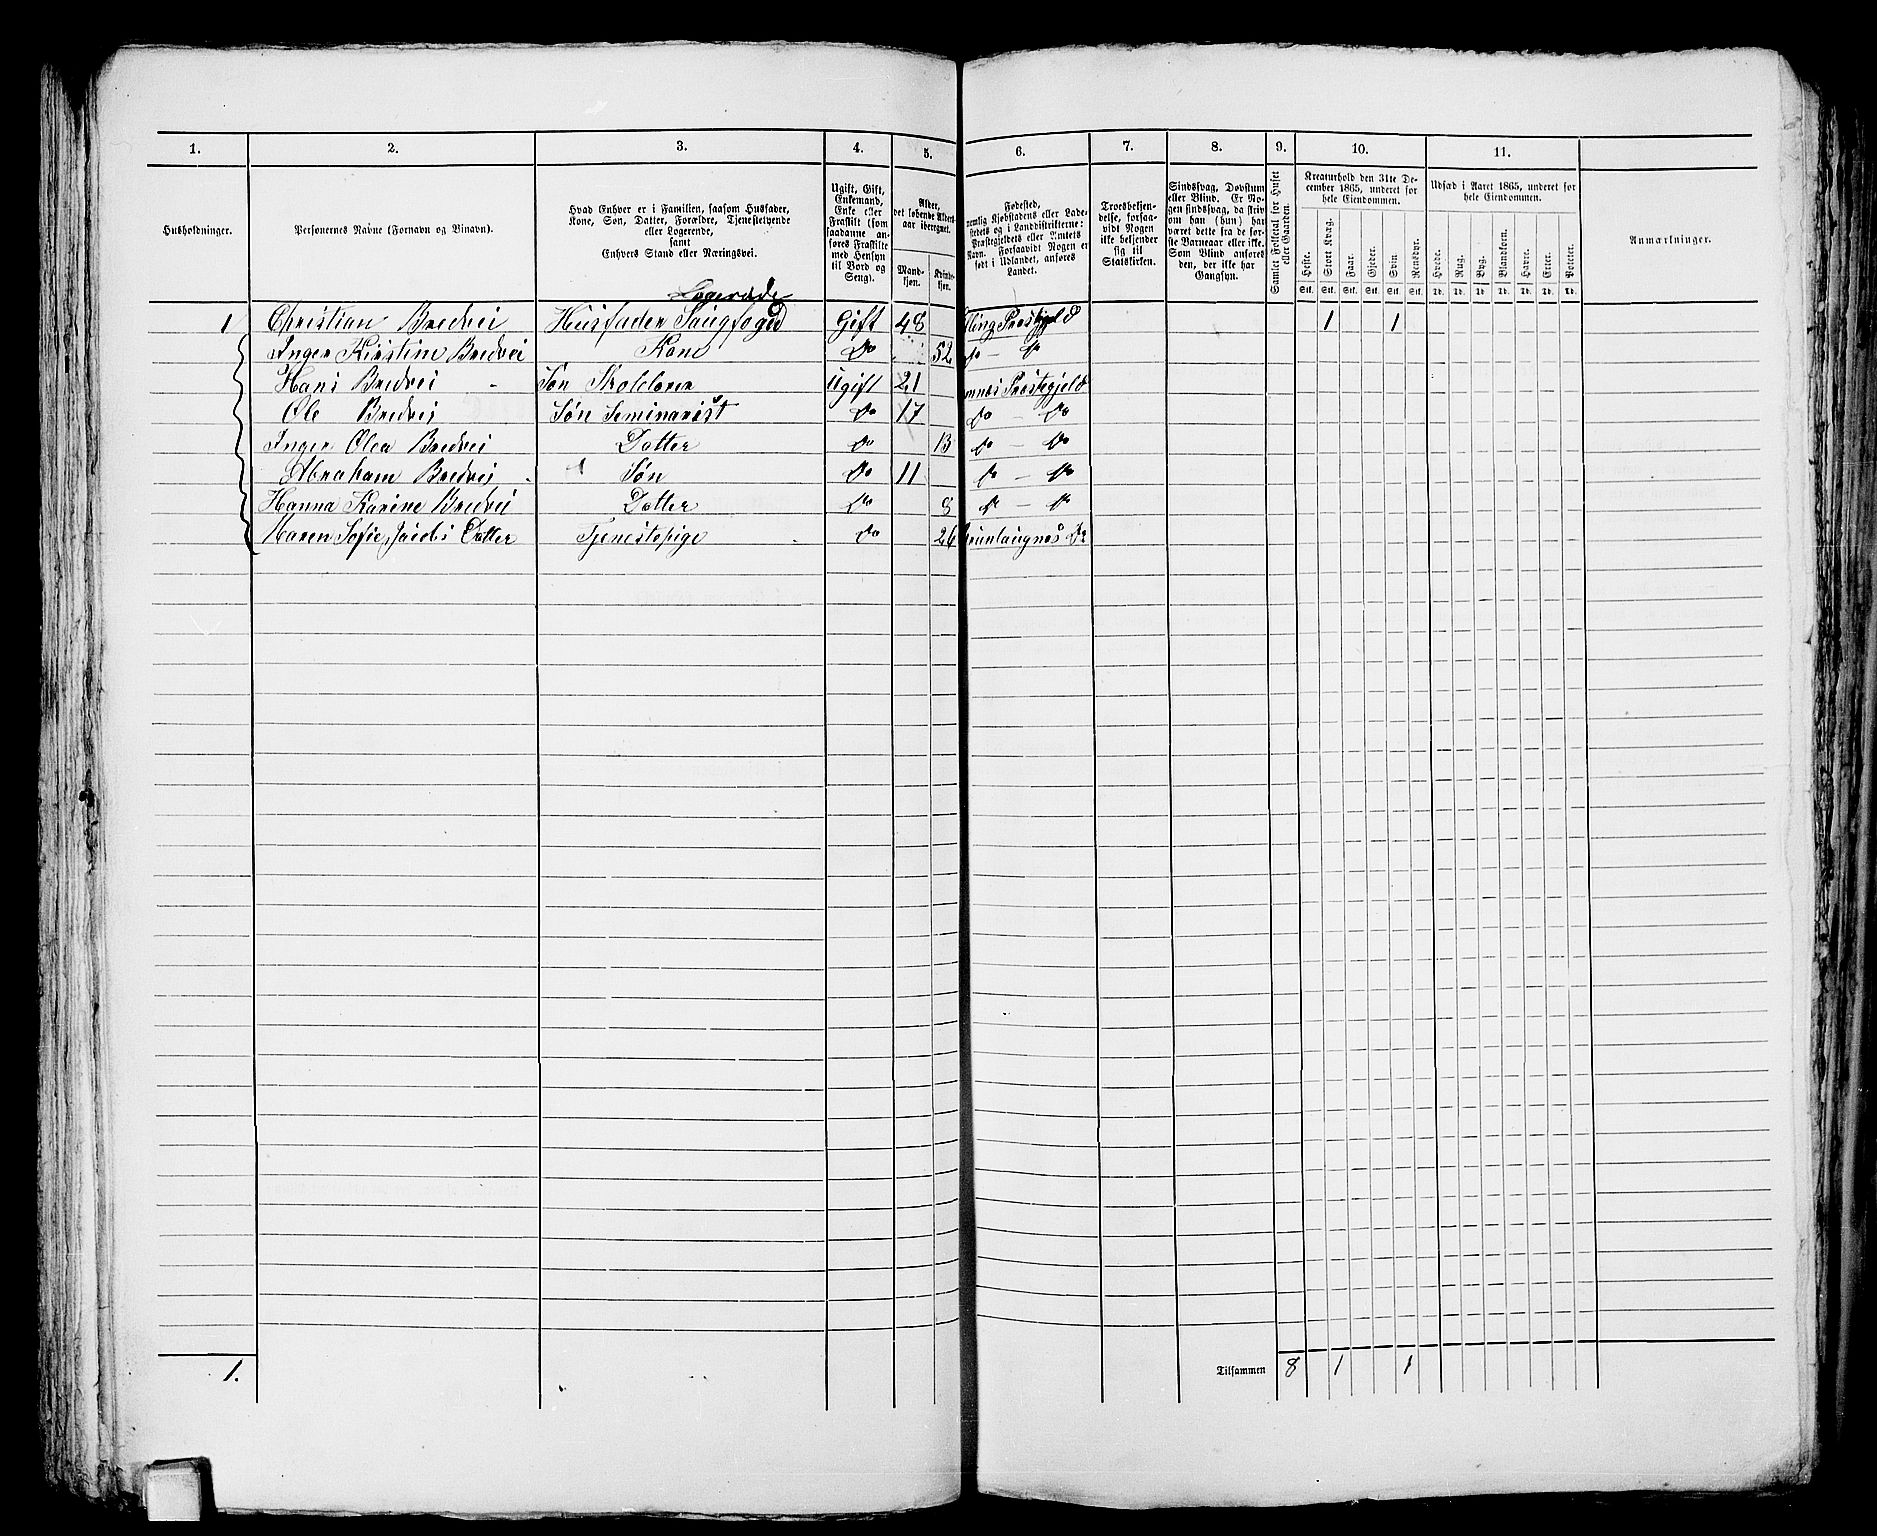 1. 2. 3. 4. 5. 6. 7. 8. 9. 10. 11.
Husholdninger.
Personernes Navne (Fornavn og Binavn).
Hvad Enhver er i Familien, saasom Husfader,
Kone, Søn, Datter, Forældre, Tjenestetyende
eller Logerende,
samt
Enhvers Stand eller Næringsvei.
Ugift, Gift,
Enkemand,
Enke eller
Fraskilt (som
saadanne an-
føres Fraskilte
med Hensyn
til Bord og
Seng).
Alder,
det løbende Alders-
aar iberegnet.
Mand-
kjøn.
Kvinde-
kjøn.
Fødested,
nemlig Kjøbstadens eller Lade-
stedets og i Landdistrikterne:
Præstegjeldets eller Amtets
Navn. Forsaavidt Nogen er
født i Udlandet, anføres
Landet.
Troesbekjen-
delse, forsaa-
vidt Nogen
ikke bekjender
sig til
Statskirken.
Sindssvag, Døvstum
eller Blind. Er No-
gen sindssvag, da skriv
om han (hun) har
været dette fra de før-
ste Barneaar eller ikke.
Som Blind anføres
den, der ikke har
Gangsyn.
Samlet Folketal for Huset
eller Gaarden.
Kreaturhold den 31te De-
cember 1865, underet for
hele Eiendommen.
Heste. Stort Kvæg. Faar. Gjeder. Svin. Rensdyr.
Stk. Stk. Stk. Stk. Stk. Stk.
Udsæd i Aaret 1865, underet for
hele Eiendommen.
Hvede. Rug. Byg. Blandkorn. Havre. Erter. Poteter.
Td. Td. Td. Td. Td. Td. Td.
Anmærkninger.
1 Christian Bredvei Husfader Saugfoged Gift 48 Præstgjeld 1 1
Inger Kirstine Bredvei Kone Do 52 Do — Do
Hans Bredvei Søn Skolelærer Ugift 21 Præstegjeld
Ole Bredvei Søn Seminarist Do 17 Do — Do
Inger Olea Bredvei Datter Do 13 Do — Do
Abraham Bredvei Søn Do 11 Do — Do
Hanna Karine Bredvei Datter Do 8 Do — Do
Maren Sofie Jacobs Datter Tjenestepige Do 26 Do
1. Tilsammen 8 1 1